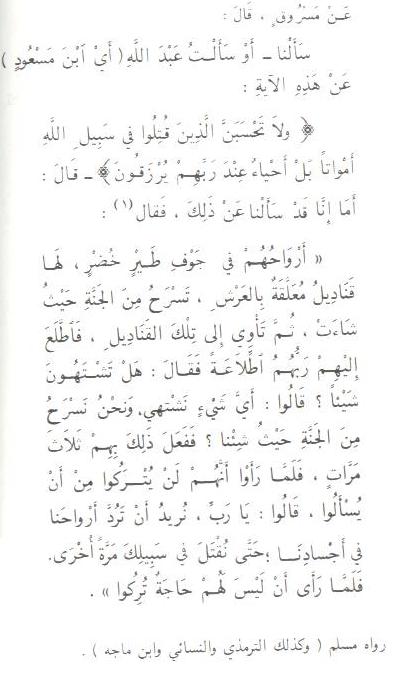 عَنْ مَسْرُوقٍ ، قَالَ :
سَأَلْنا - أَوْ سَأَلْتُ عَبْدَ اللَّهِ ( أَيْ آبْنَ مَسْعُودٍ )
عَنْ هَذِهِ الآيةِ :
﴿ ولاَ تَحْسَبَنَّ الَّذِينَ قُتِلُوا في سَبِيلِ اللَّهِ
أمْواتاً بَلْ أَحْياءُ عِنْدَ رَبِّهِمْ يُرْزَقُونَ ﴾ - قَالَ :
أَمَا إِنَّا قَدْ سَأَلْنا عَنْ ذَلِكَ ، فَقال (١) :
« أَرْوَاحُهُمْ في جَوْفِ طَيْرٍ خُضْرٍ ، لَهَا
قَنَادِيلُ مُعَلَّقَةٌ بِالعَرْشِ ، تَسْرَحُ مِنَ الجَنَّةِ حَيْثُ
شَاءَتْ ، ثُمَّ تَأْوِي إلى تِلْكَ القَنَادِيلِ ، فَآطَّلَعَ
إِلَيْهِمْ رَبُّهُمُ آطِّلاعَةً فَقَالَ : هَلْ تَشْتَهُونَ
شَيْئاً ؟ قَالُوا : أَيَّ شَيْءٍ نَشْتَهي، وَنَحْنُ نَسْرَحُ
مِنَ الجَنَّةِ حَيْثُ شِئْنا ؟ فَفَعَلَ ذَلِكَ بِهِمْ ثَلاثَ
مَرَّاتٍ ، فَلَمَّا رَأَوْا أَنَّهُمْ لَنْ يُتْرَكُوا مِنْ أَنْ
يُسْأَلُوا ، قَالُوا : يَا رَبِّ ، نُرِيدُ أَنْ تَرُدَّ أَرْواحَنا
في أَجْسادِنَا ؛ حَتَّى نُقْتَلَ في سَبِيلِكَ مَرَّةً أُخْرَى.
فَلَمَّا رَأَى أَنْ لَيْسَ لَهُمْ حَاجَةٌ تُرِكُوا » .
رواه مسلم ( وكذلك الترمذي والنسائي وابن ماجه ) .